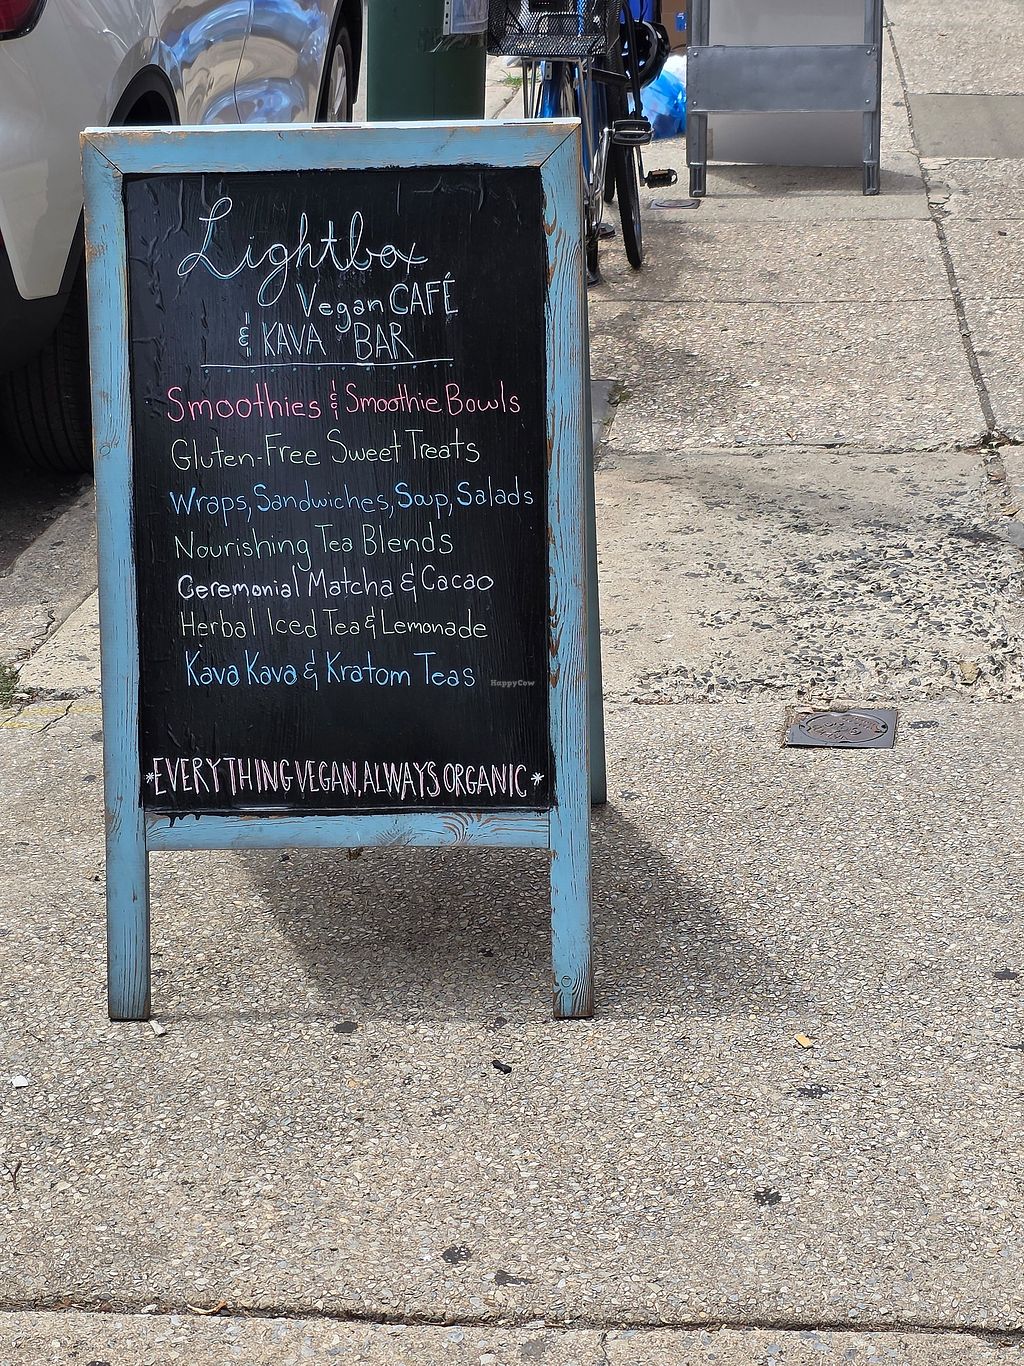 Lightbox
Vegan CAFÉ
& KAVA BAR
Smoothies & Smoothie Bowls
Gluten-Free Sweet Treats
Wraps, Sandwiches, Soup, Salads
Nourishing Tea Blends
Ceremonial Matcha & Cacao
Herbal Iced Tea & Lemonade
Kava Kava & Kratom Teas
HappyCow
*EVERYTHING VEGAN, ALWAYS ORGANIC*